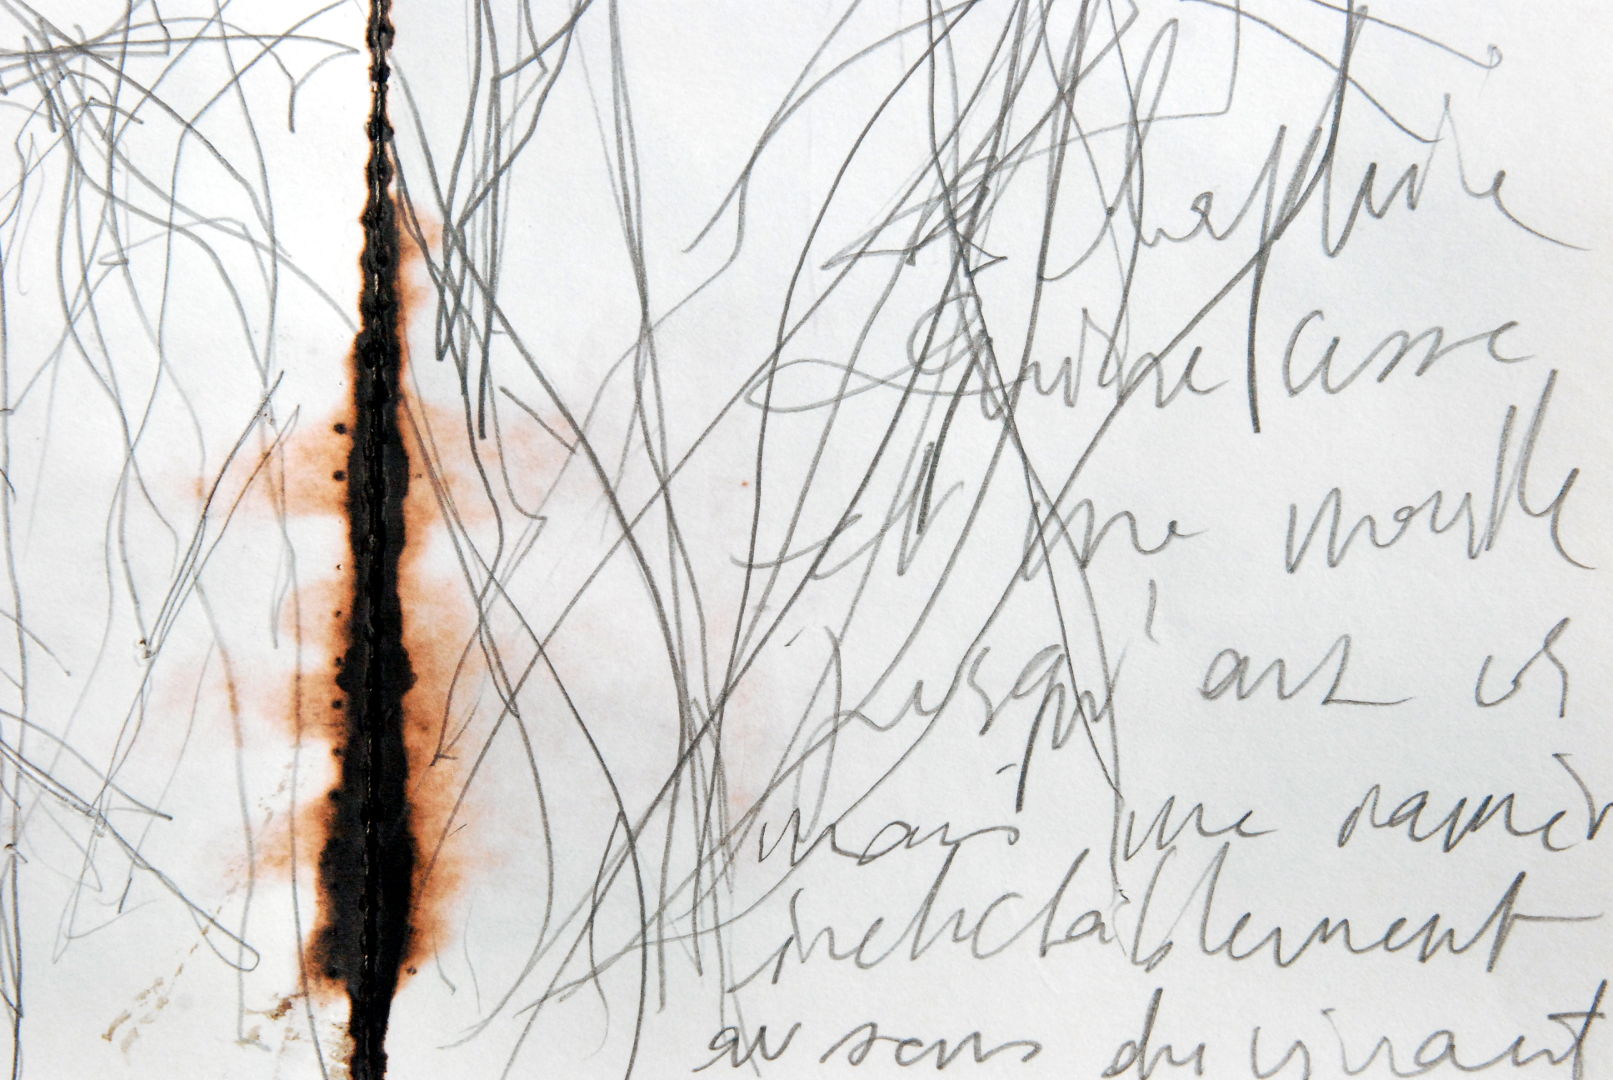 casse
et me mouille
jusqu'aux os
mais me ramèn
inéluctablement
au sens du vivant